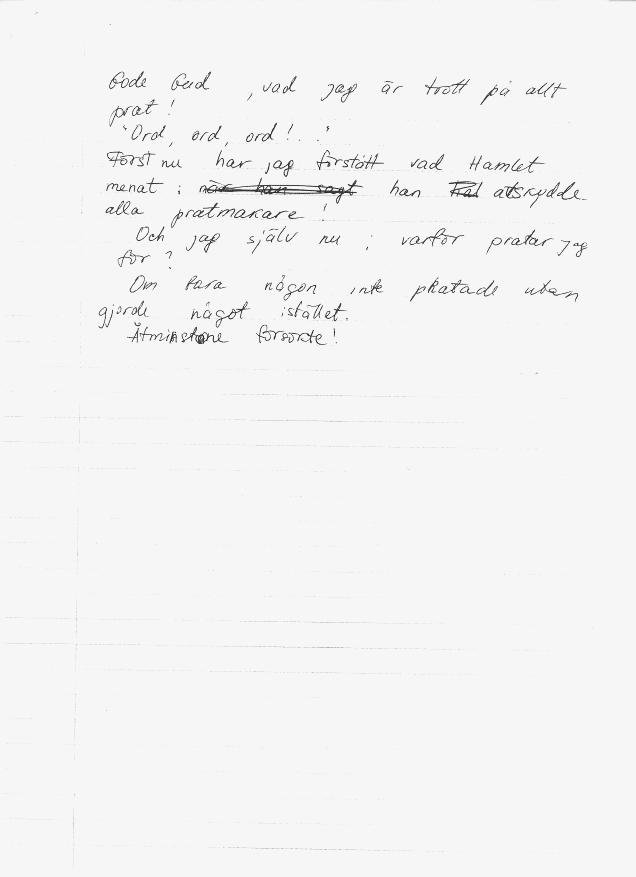 Gode Gud , vad jag är trött på allt
prat !
"Ord, ord, ord ! . . "
Först nu har jag förstått vad Hamlet
menat ; när han sagt han avskydde
alla pratmakare !
Och jag själv nu ; varför pratar jag
för ?
Om bara någon inte pratade utan
gjorde något istället.
Åtminstone försökte !